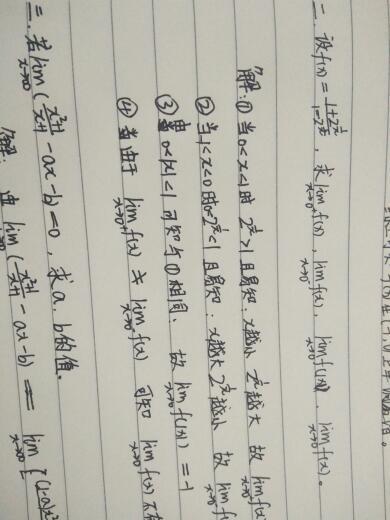 一、设f(x)=\frac{1+2^{\frac{1}{x}}}{1-2^{\frac{1}{x}}}，求\lim_{x→0^+}f(x)，\lim_{x→0^-}f(x)，\lim_{x→0}f(|x|)，\lim_{x→0}f(x)。
解：①当0<x<1时 2^{\frac{1}{x}}>1且易知：x越小 2^{\frac{1}{x}}越大 故 \lim_{x→0^+}f(x
②当-1<x<0时0<2^{\frac{1}{x}}<1且易知：x越大2^{\frac{1}{x}}越小 故 \lim_{x→0^-}f(
③由0<|x|<1可知与①相同、故\lim_{x→0}f(|x|)=-1
④由于 \lim_{x→0^+}f(x)≠\lim_{x→0^-}f(x) 可知 \lim_{x→0}f(x)不
二、若\lim_{x→∞}(\frac{x^2+1}{x+1}-ax-b)=0，求a、b的值。
解：由\lim_{x→∞}(\frac{x^2+1}{x+1}-ax-b)=\lim_{x→∞}[(1-a)x